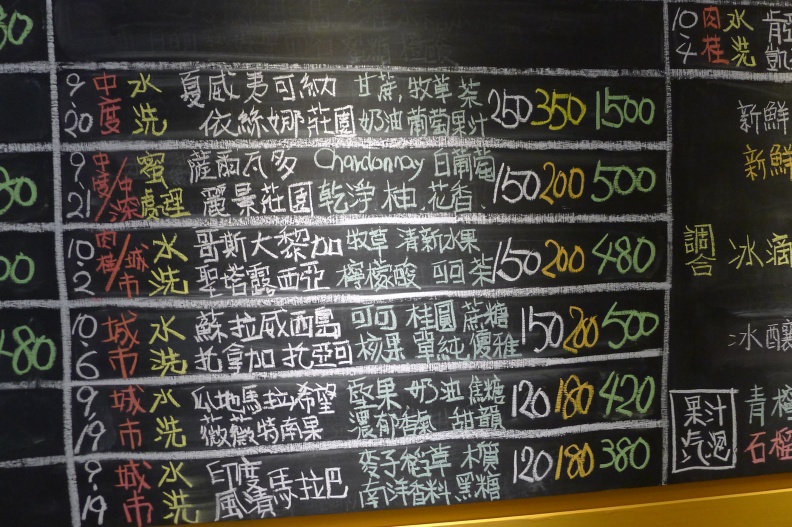 80
10 肉 水
4 桂 洗
9 中 水 夏威夷可納 甘蔗,牧草茶 250 350 1500
20 度 洗 依絲娜莊園 奶油葡萄果汁
9 中度/中深 蜜 薩爾瓦多 Chardonnay 白葡萄 150 200 500
21 處理 麗景莊園 乾淨 柚 花香
10 肉桂/城市 水 哥斯大黎加 牧草 清新水果 150 200 480
2 洗 聖塔露西亞 檸檬酸 可可茶
10 城 水 蘇拉威西島 可可 桂圓 蔗糖 150 200 500
6 市 洗 托拿加 托亞可 核果 單純優雅
9 城 水 瓜地馬拉希望 歐果 奶油 焦糖 120 180 420
19 市 洗 薇薇特南果 濃郁香氣 甜韻
9 城 水 印度 麥子稻草 木質 120 180 380
19 市 洗 風漬馬拉巴 南洋香料 黑糖
480
新鮮
新鮮
調合 冰滴
冰釀
果汁 青檸
汽泡 石榴